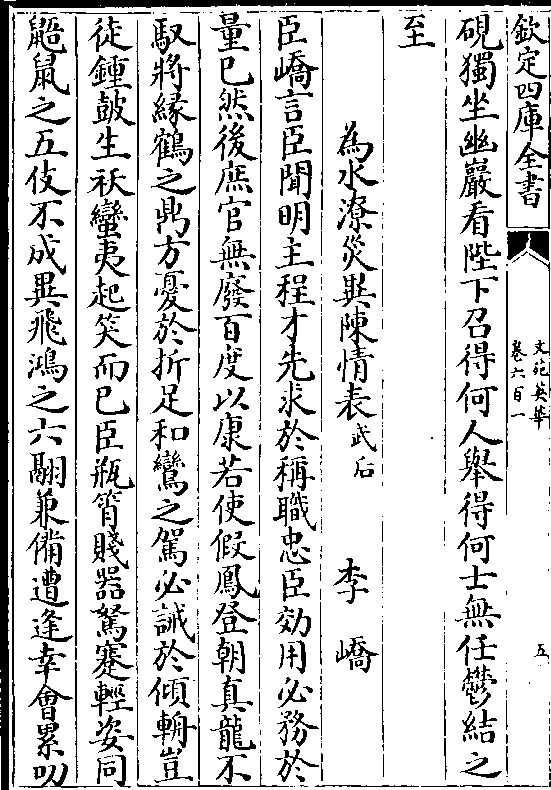 欽定四庫全書
文苑英華
卷六百一
五
硯獨坐幽巖看陛下召得何人舉得何士無任鬱結之
至
為水潦災異陳情表武后 李嶠
臣嶠言臣聞明主程才先求於稱職忠臣効用必務於
量已然後庶官無廢百度以康若使假鳳登朝真龍不
馭將緣鶴之鼎方憂於折足和鸞之駕必誡於傾輈豈
徒鍾皷生祅蠻夷起笑而已臣瓶筲賤器駑蹇輕姿同
鼯鼠之五伎不成異飛鴻之六翮兼備遭逢幸會累叨